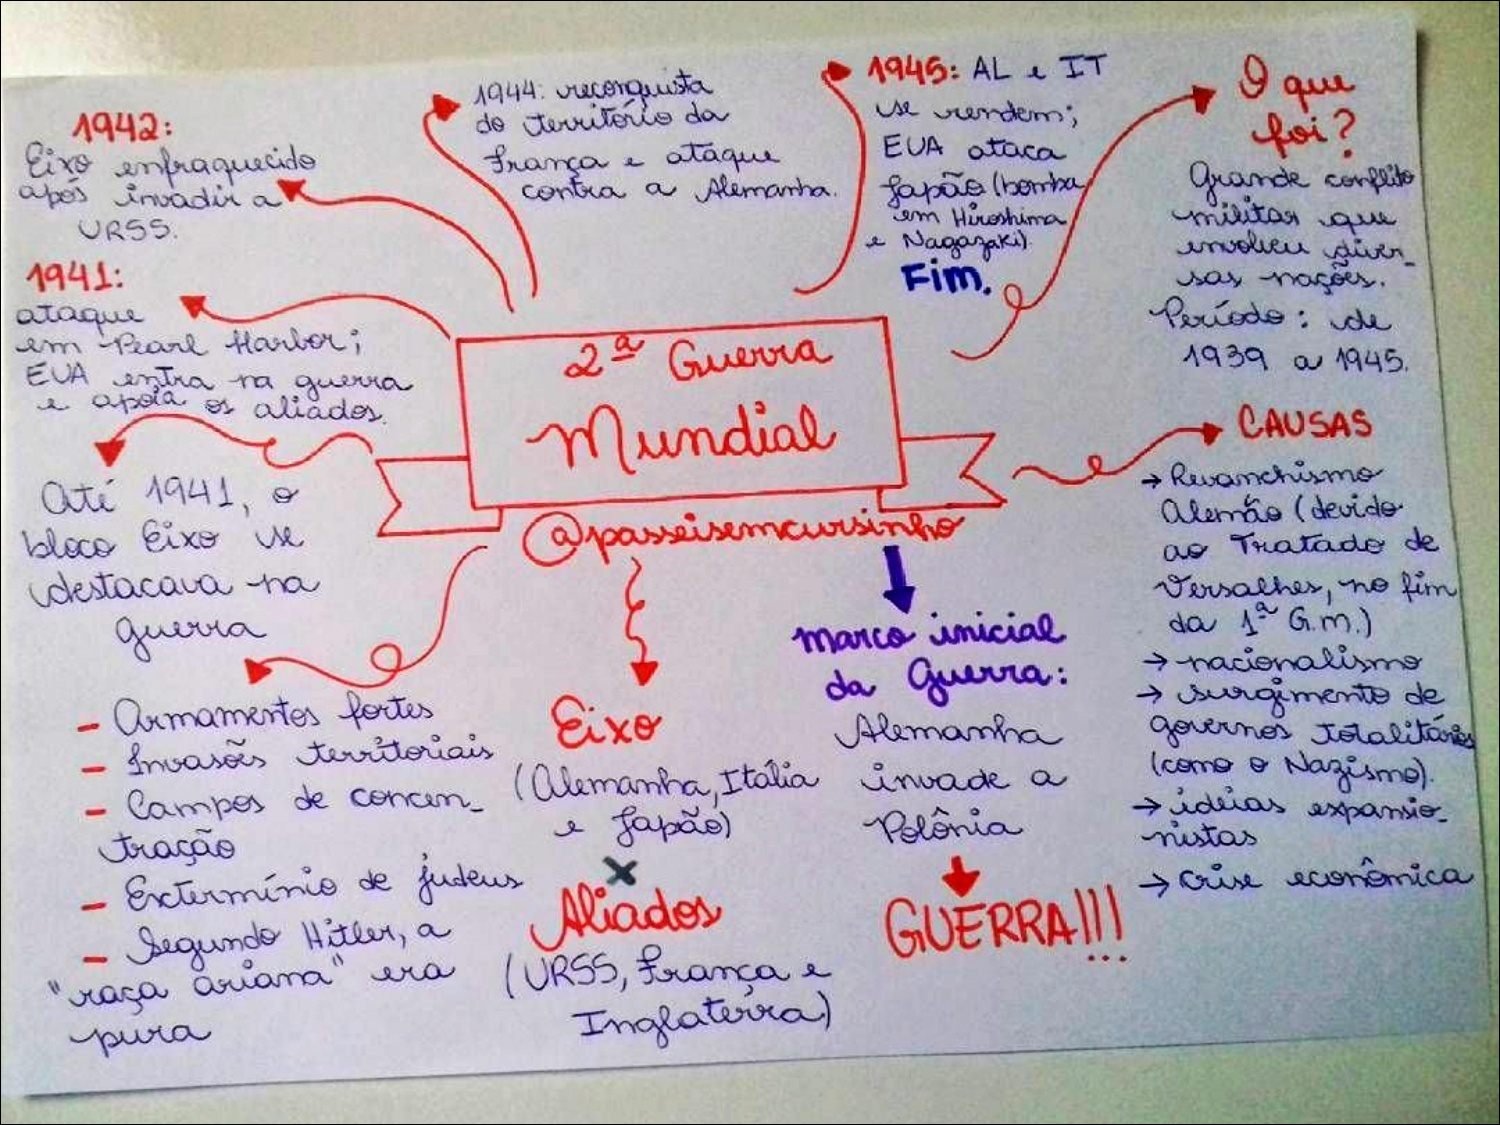 2ª Guerra
Mundial
@passeisemcursinho
O que
foi?
Grande conflito
militar que
envolveu diver-
sas nações.
Período: de
1939 a 1945.
CAUSAS
→ Revanchismo
Alemão (devido
ao Tratado de
Versalhes, no fim
da 1ª G.M.)
→ nacionalismo
→ surgimento de
governos totalitários
(como o Nazismo).
→ ideias expansio-
nistas
→ crise econômica
marco inicial
da Guerra:
Alemanha
invade a
Polônia
GUERRA!!!
Eixo
(Alemanha, Itália
e Japão)
X
Aliados
(URSS, França e
Inglaterra)
- Armamentos fortes
- Invasões territoriais
- Campos de concen-
tração
- Extermínio de judeus
- Segundo Hitler, a
"raça ariana" era
pura
Até 1941, o
bloco Eixo se
destacava na
guerra
1941:
ataque
em Pearl Harbor;
EUA entra na guerra
e apoia os aliados.
1942:
Eixo enfraquecido
após invadir a
URSS.
1944: reconquista
do território da
França e ataque
contra a Alemanha.
1945: AL e IT
se rendem;
EUA ataca
Japão (bomba
em Hiroshima
e Nagazaki).
Fim.